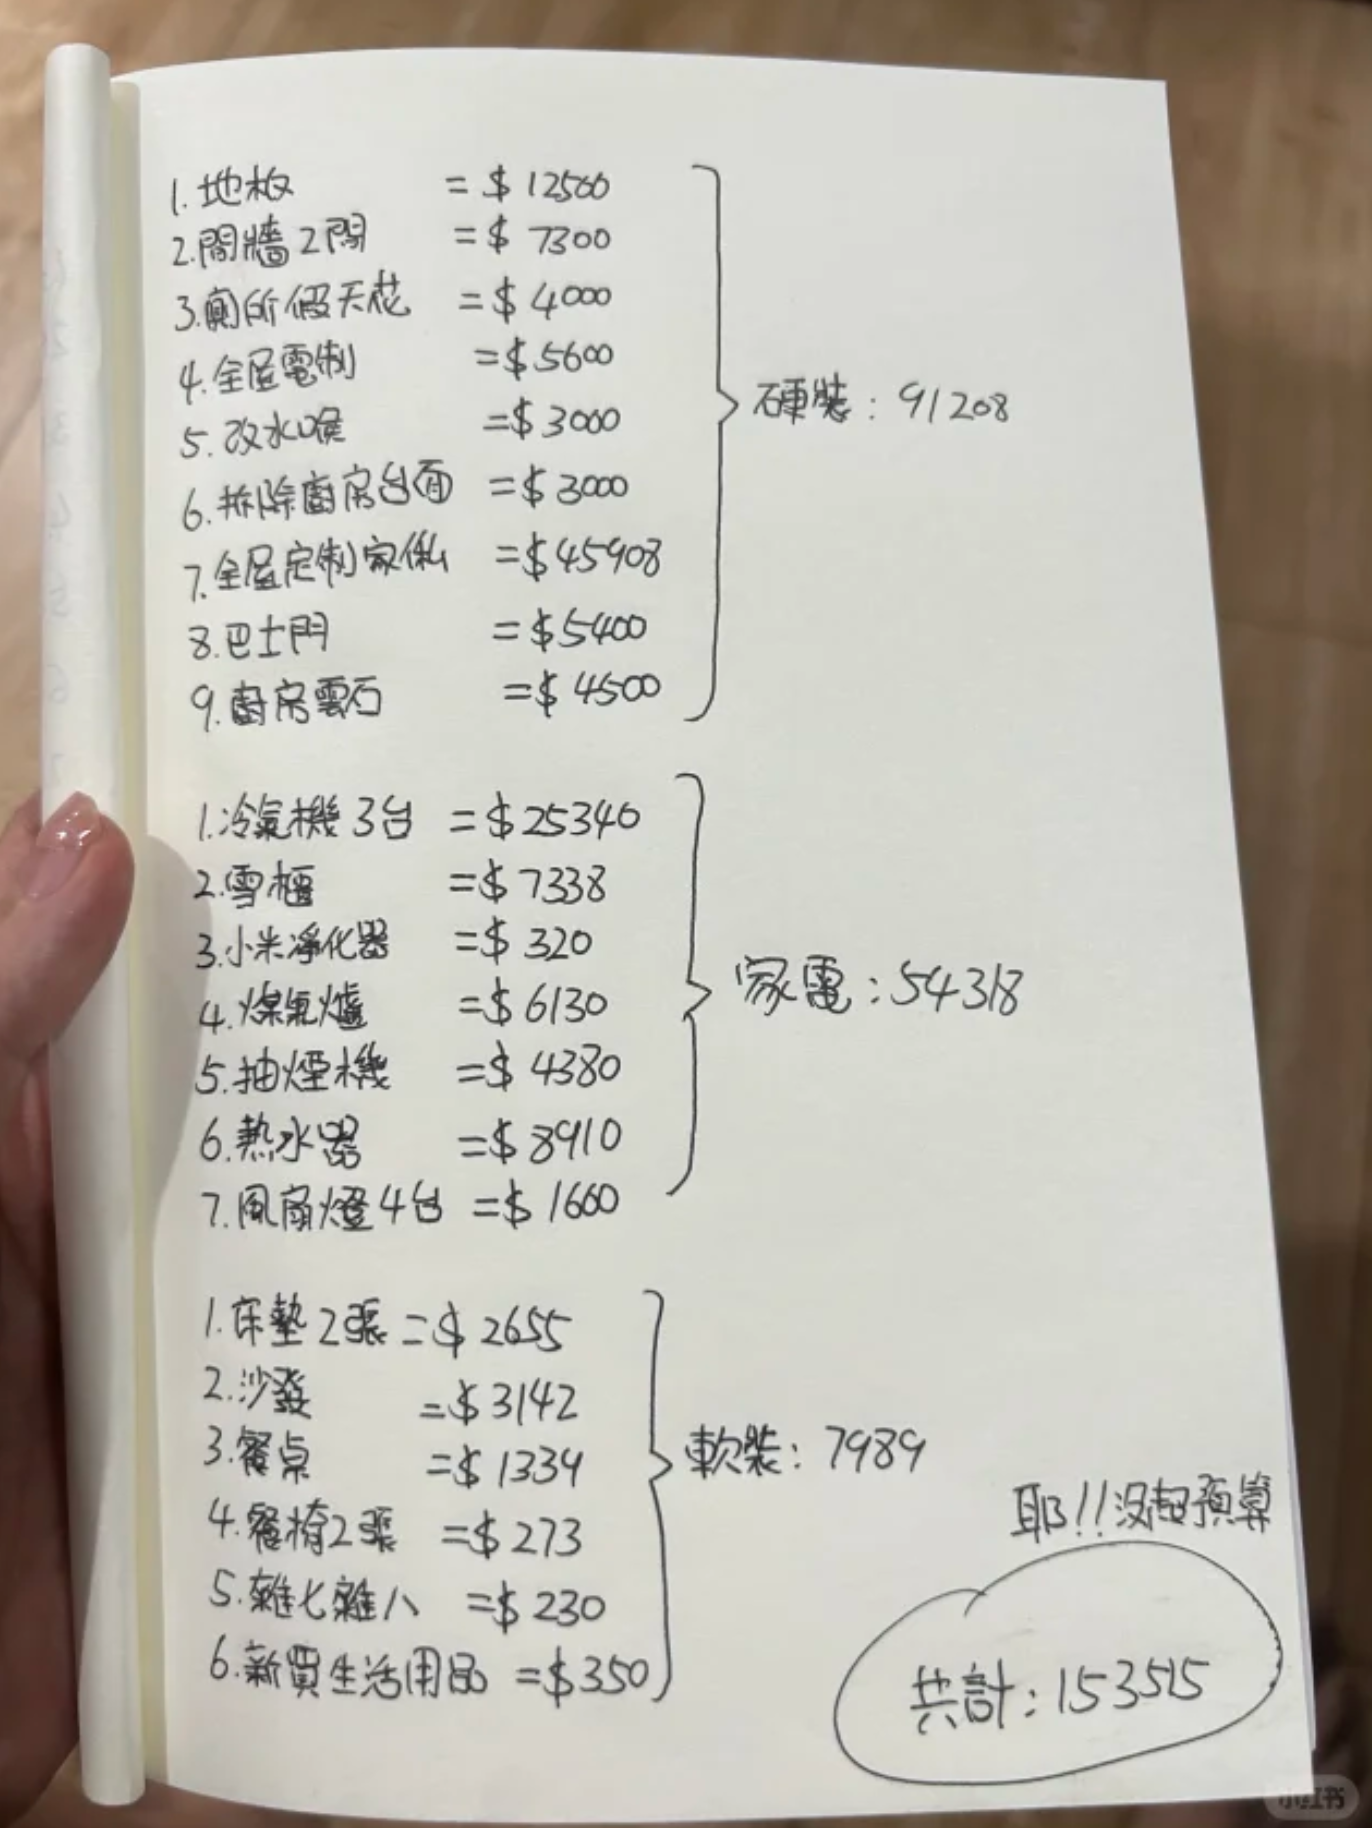 1.地板 = $ 12500
2.間牆2間 = $ 7300
3.廁所假天花 = $ 4000
4.全屋電制 = $5600
5.改水喉 = $3000
6.拆除廚房台面 = $3000
7.全屋定制家俬 = $45908
8.巴士門 = $5400
9.廚房雲石 = $4500
硬裝: 91208
1.冷氣機3台 = $25340
2.雪櫃 = $7338
3.小米凈化器 = $ 320
4.煤氣爐 = $ 6130
5.抽煙機 = $ 4380
6.熱水器 = $ 8910
7.風扇燈4台 = $ 1600
家電: 54318
1.床墊2張 = $ 2655
2.沙發 = $3142
3.餐桌 = $ 1339
4.餐椅2張 = $ 273
5.雜七雜八 = $ 230
6.新買生活用品 = $350
軟裝: 7989
耶!!沒超預算
共計: 153515
小红书